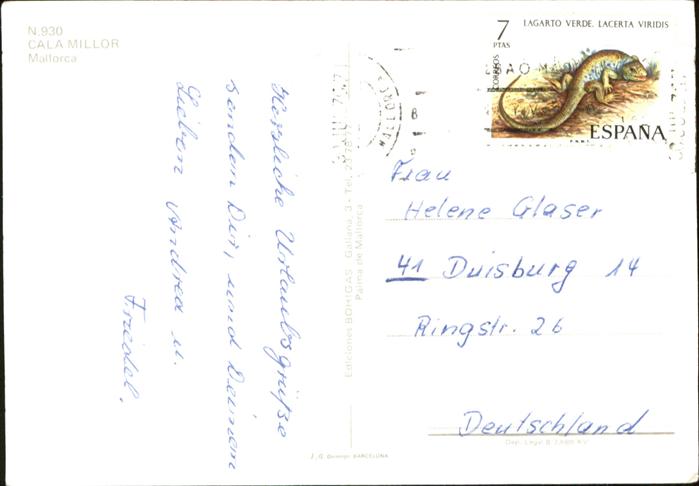 N.930
CALA MILLOR
Mallorca
Herzliche Urlaubsgrüße
senden Dir, und Deinem
Lieben Andrea u.
Friedel.
Ediciones BOHIGAS Galiana, 3 - Tel.
Palma de Mallorca
7
PTAS
CORREOS
LAGARTO VERDE. LACERTA VIRIDIS
ESPAÑA
F.N.M.T.
Frau
Helene Glaser
41 Duisburg 14
Ringstr. 26
Deutschland
J. G. Domingo BARCELONA